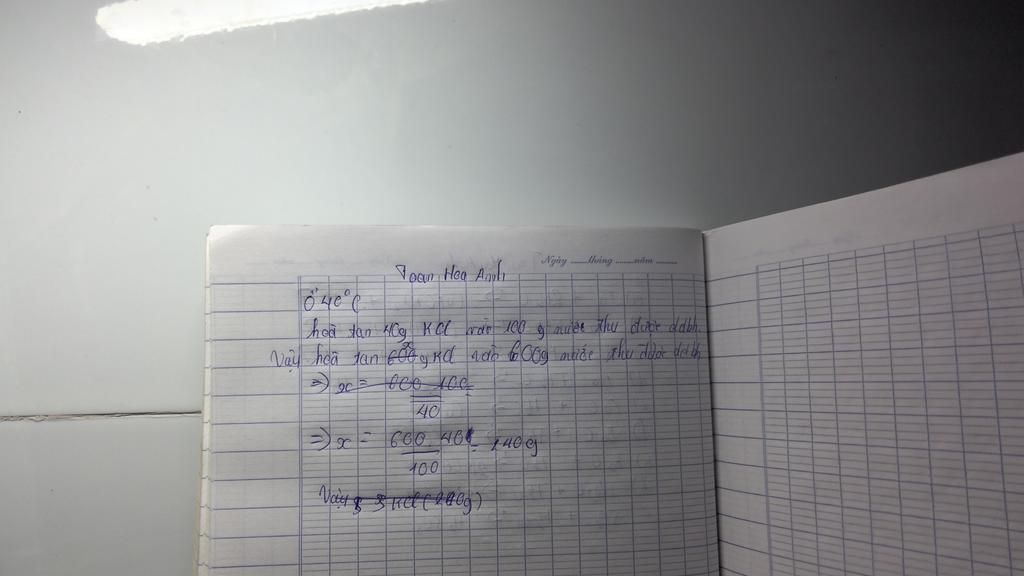 Ngày ......tháng ......năm ......
Toan Hoa Anh
Ở 40°C
hoà tan 40g KCl vào 100 g nước thu được ddbh.
Vậy hoà tan x g KCl vào 600g nước thu được ddbh
=> x = 600 . 100 =
40
=> x = 600 . 40 = 240g
100
Vậy KCl (240g)